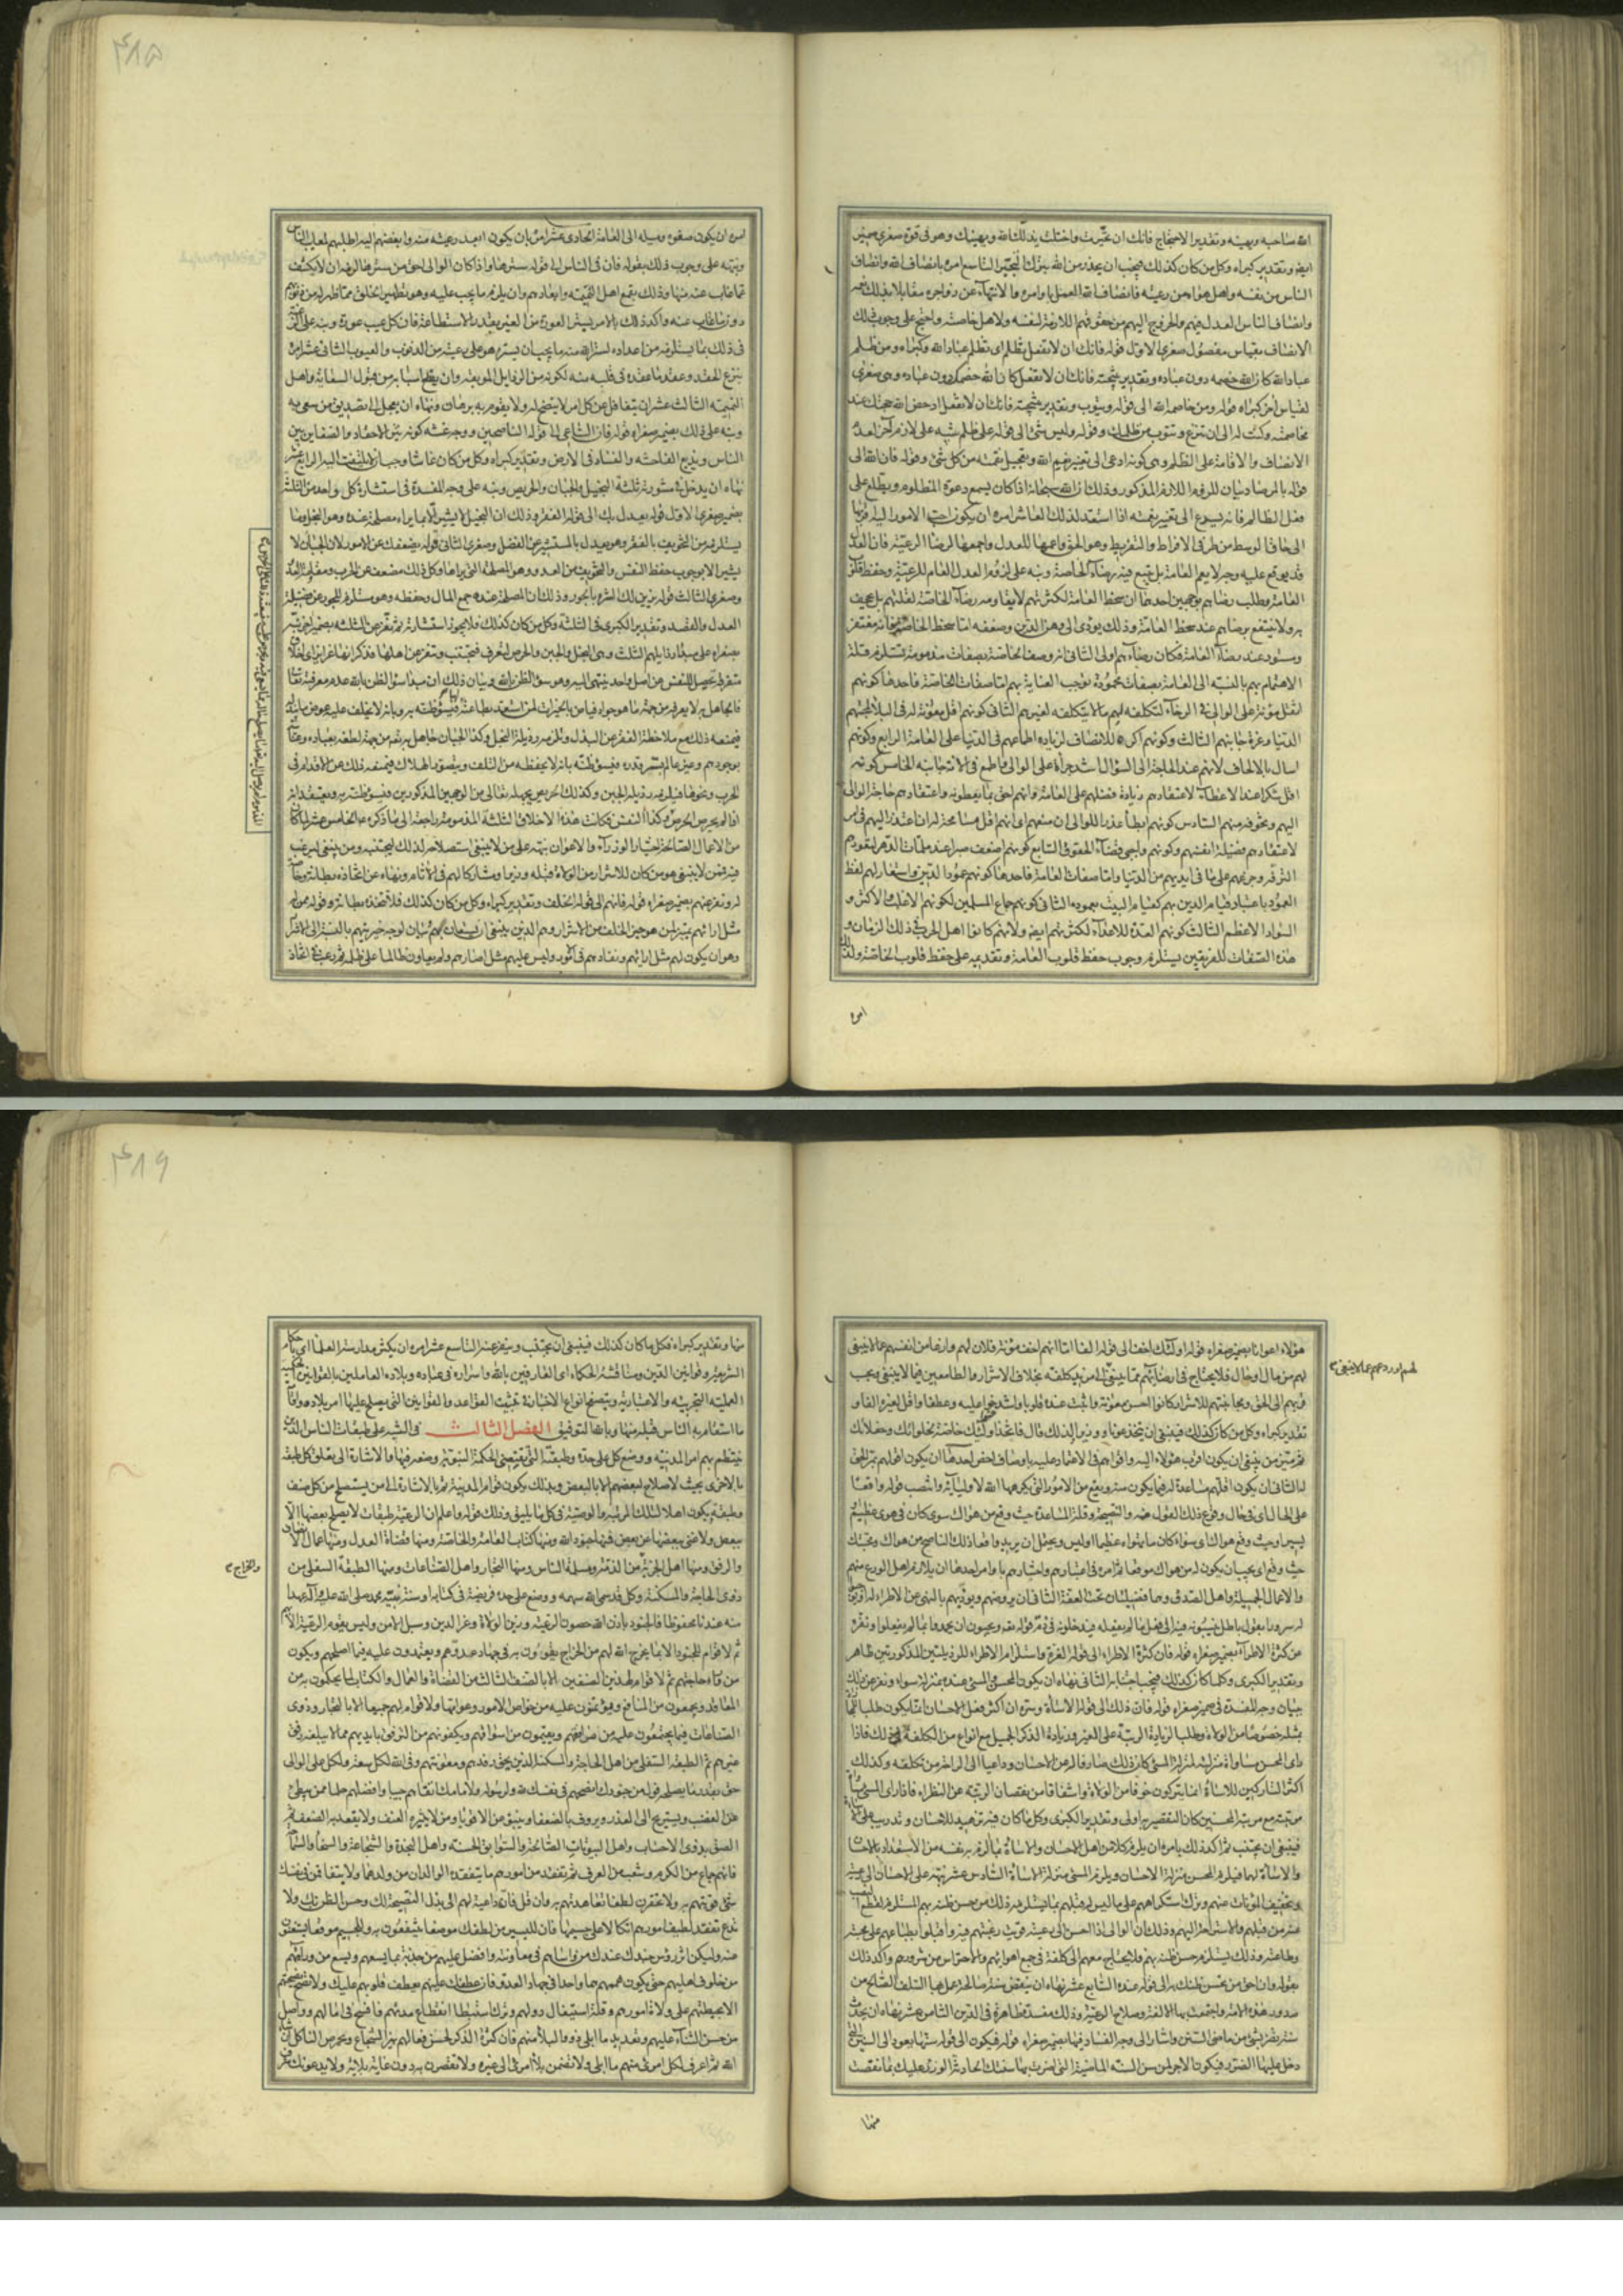 الله ساخيه ويهينه وتقدير الاحتجاج فانك ان تجبرت واختلت يذلك الله ويهينك وهو في قوة صغرى ضمير
ايضا وتقدير كبراه وكل من كان كذلك فيجب ان يحذر من الله بترك التجبر التاسع امره بانصاف الله وانصاف
الناس من نفسه واهل هواه من رعيته فانصاف الله العمل باوامره والانتهاء عن زواجره
وانصاف الناس العدل فيهم والخروج اليهم من حقوقهم اللازمة لنفسه ولاهل خاصته واحتج على وجوب ذلك
الانصاف بقياس مفصول صغرى الاول قوله فانك ان لا تفعل تظلم اى تظلم عباد الله وكبراه ومن ظلم
عباد الله كان الله خصمه دون عباده وتقدير نتيجته فانك ان لا تفعل كان الله خصمك دون عباده وهى صغرى
لقياس اخر كبراه قوله ومن خاصمه الله الى قوله ويتوب وتقدير نتيجته فانك ان لا تفعل ادحض الله حجتك عند
مخاصمته وكنت له الى ان تنزع وتتوب من ظلمك وقوله وليس شئ الى قوله على ظلم تنبيه على لازم اخر لعدم
الانصاف والاقامة على الظلم وهى كونه ادعى الى تغيير نعم الله وتعجيل نقمته من كل شئ وقوله فان الله الى
قوله بالمرصاد بيان للزوم اللازم المذكور وذلك ان الله سبحانه اذا كان يسمع دعوة المظلوم ويطلع على
فعل الظالم فانه يسرع الى تغيير نعمته اذا استعد لذلك العاشر امره ان يكون احب الامور اليه اقربها
الى حاق الوسط من طرفى الافراط والتفريط وهو الحق واعمها للعدل واجمعها لرضا الرعية فان العدل
قد يوقع على وجه لا يعم العامة بل تتبع فيه رضاء الخاصة ونبه على لزوم العدل العام للرعية وحفظ قلوب
العامة وطلب رضاهم بوجهين احدهما ان سخط العامة لكثرتهم لا يقاومه رضاء الخاصة لقلتهم بل يجحف
به ولا ينتفع برضاهم عند سخط العامة وذلك يؤدى الى وهن الدين وضعفه اما سخط الخاصة فانه مغتفر
ومستور عند رضاء العامة فكان رضاءهم اولى الثانى انه وصف الخاصة بصفات مذمومة تستلزم قلة
الاهتمام بهم بالنسبة الى العامة بصفات محمودة توجب العناية بهم اما صفات الخاصة فاحدها كونهم
اثقل مؤنة على الوالى فى الرخاء لتكلفه لهم مالا يتكلفه لغيرهم الثانى كونهم اقل معونة له فى البلاء لمحبتهم
الدنيا وعزة جانبهم الثالث وكونهم اكره للانصاف لزيادة اطماعهم فى الدنيا على العامة الرابع وكونهم
اسال بالالحاف لانهم عند الحاجة الى السؤال اشد جراءة على الوالى الخامس كونهم
اقل شكرا عند الاعطاء لاعتقادهم زيادة فضلهم على العامة وانهم احق بما يعطونه واعتقادهم حاجة الوالى
اليهم وتخوفه منهم السادس كونهم ابطأ عذرا للوالى ان منعهم اى انهم اقل مسامحة له ان اعتذر اليهم فى امر
لاعتقادهم فضيلة انفسهم وكونهم واجبى قضاء الحقوق السابع كونهم اضعف صبرا عند ملمات الدهر لتعودهم
الترفه وجزعهم على ما فى ايديهم من الدنيا واما صفات العامة فاحدها كونهم عمود الدين واستعار لهم لفظ
العمود باعتبار قيام الدين بهم كقيام البيت بعموده الثانى كونهم جماع المسلمين لكونهم الاغلب الاكثر و
السواد الاعظم الثالث كونهم العدة للاعداء لكثرتهم ايضا ولانهم كانوا اهل الحرب فى ذلك الزمان و
هذه الصفات للفريقين يستلزم وجوب حفظ قلوب العامة وتقديمه على حفظ قلوب الخاصة ولذلك
امره
٤١٥
امره ان يكون صغوه وميله الى العامة الحادى عشر امره بان يكون ابعد رعيته منه وابغضهم اليه اطلبهم لمعايب الناس
ونبه على وجوب ذلك بقوله فان فى الناس الى قوله سترها واذا كان الوالى احق من سترها لزمه ان لا يكشف
عما غاب عنه منها وذلك بقمع اهل النميمة وابعادهم وان يلزم ما يجب عليه وهو تطهير الخلق مما ظهر له من ذنوبهم
دون ما غاب عنه واكد ذلك بالامر بستر العورة من الغير بقدر الاستطاعة فان كل عيب عورة ونبه على
فى ذلك بما يستلزمه من اعداده لستر الله منه ما يحب ان يستره هو على رعيته من الذنوب والعيوب الثانى عشر امره
بنزع الحقد وعقد ما عقده فى قلبه منه لكونه من الرذايل الموبقة وان يقطع اسبابه من قبول السعاية واهل
النميمة الثالث عشر ان يتغافل عن كل امر لا يتضح له ولا يقوم به برهان ونهاه ان يعجل الى تصديق من سعى به
ونبه على ذلك بضمير صغراه قوله فان الساعى الى قوله الناصحين ووجه غشه كونه يثير الاحقاد والضغاين بين
الناس ويذيع الفاحشة والفساد فى الارض وتقدير كبراه وكل من كان غاشا وجب ان لا يلتفت اليه الرابع عشر
نهاه ان يدخل فى مشورته ثلثة البخيل والجبان والحريص ونبه على وجه المفسدة فى استشارة كل واحد من الثلثة
بضمير صغرى الاول قوله يعدل بك الى قوله الفقر وذلك ان البخيل لا يشير الا بما يراه مصلحة عنده وهو البخل وما
يستلزمه من التخويف بالفقر وهو يعدل بالمستشير عن الفضل وصغرى الثانى قوله يضعفك عن الامور لان الجبان لا
يشير الا بوجوب حفظ النفس والتخويف من العدو وهو المصلحة التى يراها وكل ذلك مضعف عن الحرب ومقاومة العدو
وصغرى الثالث قوله يزين لك الشره بالجور وذلك ان المصلحة عنده جمع المال وحفظه وهو مستلزم للجور عن فضيلة
العدل والقصد وتقدير الكبرى فى الثلثة وكل من كان كذلك فلا يجوز استشارته ثم نفر عن الثلثة بضمير اخر نبه
بصغراه على مبدأ رذايلهم الثلث وهى البخل والجبن والحرص
متفرقة تحصل للنفس عن اصل واحد ينتهى اليه وهو سوء الظن بالله وبيان ذلك ان مبدأ سوء الظن بالله عدم معرفته تعالى
فالجاهل به لا يعرفه من جهة ما هو جواد فياض بالخيرات لمن استعد بطاعته لها فيسوء ظنه به وبانه لا يخلف عليه عوض ما يبذله
فيمنعه ذلك مع ملاحظة الفقر عن البذل وتلزمه رذيلة البخل وكذا الجبان جاهل به تعالى من جهة لطفه بعباده وعنايته
بوجودهم وغير عالم بسر قدره فيسوء ظنه بانه لا يحفظه من التلف ويتصور الهلاك فيمنعه ذلك عن الاقدام فى
الحرب ونحوها فيلزمه رذيلة الجبن وكذلك الحريص يجهله تعالى من الوجهين المذكورين فيسوء ظنه به ويعتقد انه
اذا لم يحرص الحرص المذموم
من الاعمال الصالحة اختيار الوزراء والاعوان نبه على من لا ينبغى استصلاحه لذلك ليجتنبه ومن ينبغى ليرغب
فيه فمن لا ينبغى هو من كان للاشرار من الولاة قبله وزيرا ومشاركا لهم فى الاثام ونهاه عن اتخاذه بطانة وخاصة
له ونفر عنهم بضمير صغراه قوله فانهم الى قوله الخلف وتقدير كبراه وكل من كان كذلك فلا تتخذه بطانة وقوله ممن له
مثل ارائهم تمييز لمن هو خير الخلف من الاشرار وهم الذين ينبغى ان يستعان بهم
وهو ان يكون لهم مثل ارائهم ونفاذهم فى الامور وليس عليهم مثل اصارهم ولم يعاون ظالما على ظلمه ثم رغبه فى اتخاذ
هؤلاء اعوانا بضمير صغراه قوله اولئك اخف الى قوله الفا اما انهم اخف مؤنة فلان لهم وازعا من انفسهم عما لا ينبغى
لهم من مال او حال فلا يحتاج فى ارضائهم مما ينبغى الى مزيد كلفة بخلاف الاشرار والطامعين فيما لا ينبغى وبحسب
قربهم الى الحق ومجانبتهم للاشرار كانوا احسن معونة واثبت عنده قلوبا واشد حنوا عليه وعطفا واقل لغيره الفا و
تقدير كبراه وكل من كان كذلك فينبغى ان يتخذ عونا ووزيرا لذلك قال فاتخذ اولئك خاصة لخلواتك وحفلاتك
ثم ميز من ينبغى ان يكون اقرب هؤلاء اليه واقواهم فى الاعتماد عليه باوصاف اخص احدها ان يكون اقولهم بمر الحق
له الثانى ان يكون اقلهم مساعدة له فيما يكون منه ويقع من الامور التى يكرهها الله لاوليائه وانتصب قوله واقعا
على الحال اى فى حال وقوع ذلك القول منه والنصيحة وقلة المساعدة حيث وقع من هواك سواء كان فى هوى عظيم او
يسير او حيث وقع هواك اى سواء كان ما تهواه عظيما او ليس ويحتمل ان يريد واقعا ذلك الناصح من هواك ومحبتك
حيث وقع اى يجب ان يكون له من هواك موقعا ثم امره فى اعتبارهم واختيارهم باوامر احدها ان يلازم اهل الورع منهم
والاعمال الجميلة واهل الصدق وهما فضيلتان تحت العفة الثانى ان يروضهم ويؤدبهم بالنهى عن الاطراء له او يوجبوا
له سرورا بقول باطل ينسبونه فيه الى فعل ما لم يفعله فيدخلونه فى ذم قوله تعالى ويحبون ان يحمدوا بما لم يفعلوا ونفره
عن كثرة الاطراء بضمير صغراه قوله فان كثرة الاطراء الى قوله الغرة واستلزام الاطراء للرذيلتين المذكورتين ظاهر
وتقدير الكبرى وكلما كان كذلك فيجب اجتنابه الثالث نهاه ان يكون المحسن والمسئ عنده بمنزلة سواء ونفر عن ذلك
ببيان وجه المفسدة فى ضمير صغراه قوله فان ذلك الى قوله الاساءة وسره ان اكثر فعل الاحسان انما يكون طلبا للمجازاة
بمثله خصوصا من الولاة وطلبا لزيادة الرتبة على الغير وزيادة الذكر الجميل مع انواع من الكلفة فى ذلك فاذا
راى المحسن مساواة منزلته لمنزلة المسئ كان ذلك صارفا له عن الاحسان وداعيا الى الراحة من تكلفه وكذلك
اكثر التاركين للاساءة انما يتركون خوفا من الولاة واشفاقا من نقصان الرتبة عن النظراء فاذا راى المسئ مساواة
مرتبته مع مرتبة المحسنين كان التقصير به اولى وتقدير الكبرى وكل ما كان فيه تزهيد للاحسان وتدريب على الاساءة
فينبغى ان يجتنب ثم اكد ذلك بامره ان يلزم كلا من اهل الاحسان والاساءة ما الزم به نفسه من الاستعداد بالاحسان
والاساءة لهما فيلزم المحسن منزلة الاحسان ويلزم المسئ منزلة الاساءة السادس عشر نبهه على الاحسان الى رعيته
وتخفيف المؤنات عنهم وترك استكراههم على ما ليس له قبلهم بما يستلزمه ذلك من حسن ظنه بهم المستلزم لقطع النصب
عنه من قبلهم والاستراحة اليهم وذلك ان الوالى اذا احسن الى رعيته قويت رغبتهم فيه واقبلوا بطباعهم على محبته
وطاعته وذلك يستلزم حسن ظنه بهم فلا يحتاج معهم الى كلفة فى جمع اهوائهم والاحتراس من شرورهم واكد ذلك
بقوله وان احق من يحسن ظنك به الى قوله عنده السابع عشر نهاه ان ينقض سنة صالحة عمل بها السلف الصالح من
صدور هذه الامة واجتمعت بها الالفة وصلاح الرعية وذلك مفسدة ظاهرة فى الدين الثامن عشر نهاه ان يحدث
سنة تضر بشئ من ماضى السنن واشار الى وجه الفساد فيها بضمير صغراه قوله فيكون الى قوله سنها يعود الى السنن التى
دخل عليها الضرر فيكون الاجر لمن سن السنة الماضية التى اضرت بها سنتك الحادثة والوزر عليك بما نقضت
منها
لهم او ردعهم عما لا ينبغى
٤١٦
منها وتقدير كبراه فكل ما كان كذلك فينبغى ان يجتنب وينفر عنه التاسع عشر امره ان يكثر مدارسة العلماء اى باحكام
الشريعة وقوانين الدين ومناقشة الحكماء اى العارفين بالله وباسراره فى عباده وبلاده العاملين بالقوانين الحكمية
العملية التجربية والاعتبارية وبتصفح انواع الاخبار فى تثبيت القواعد والقوانين التى يصلح عليها امر بلاده واقامة
ما استقام به الناس قبله منها وبالله التوفيق الفصل الثالث فى التنبيه على طبقات الناس الذين
ينتظم بهم امر المدينة ووضع كل على حدة وطبقته التى يقتضى الحكمة النبوية وضعه فيها والاشارة الى تعلق كل طبقة
بالاخرى بحيث لا صلاح لبعضهم الا بالبعض وبذلك يكون قوام المدينة ثم الاشارة الى من يستصلح من كل صنف
وطبقة يكون اهلا لتلك المرتبة والوصية فى كل بما يليق به وذلك قوله واعلم ان الرعية طبقات لا يصلح بعضها الا
ببعض ولا غنى ببعضها عن بعض فمنها جنود الله ومنها كتاب العامة والخاصة ومنها قضاة العدل ومنها عمال الانصاف
والرفق ومنها اهل الجزية من الذمة ومسلمة الناس ومنها التجار واهل الصناعات ومنها الطبقة السفلى من
ذوى الحاجة والمسكنة وكل قد سمى الله سهمه ووضع على حده فريضة فى كتابه او سنة نبيه محمد صلى الله عليه وآله عهدا
منه عندنا محفوظا فالجنود باذن الله حصون الرعية وزين الولاة وعز الدين وسبل الامن وليس يقوم الرعية الا بهم
ثم لا قوام للجنود الا بما يخرج الله لهم من الخراج يقوون به فى جهاد عدوهم ويعتمدون عليه فيما اصلحهم ويكون
من وراء حاجتهم ثم لا قوام لهذين الصنفين الا بالصنف الثالث من القضاة والعمال والكتاب لما يحكمون به من
المعاقد ويجمعون من المنافع ويؤتمنون عليه من خواص الامور وعوامها ولا قوام لهم جميعا الا بالتجار وذوى
الصناعات فيما يجتمعون عليه من مرافقهم ويقيمون من اسواقهم ويكفونهم من الترفق بايديهم مما لا يبلغه رفق
غيرهم ثم الطبقة السفلى من اهل الحاجة والمسكنة الذين يحق رفدهم ومعونتهم وفى الله لكل سعة ولكل على الوالى
حق بقدر ما يصلحه فول من جنودك انصحهم فى نفسك لله ولرسوله ولامامك انقاهم جيبا وافضلهم حلما ممن يبطئ
عن الغضب ويستريح الى العذر ويرؤف بالضعفاء وينبو عن الاقوياء وممن لا يثيره العنف ولا يقعد به الضعف ثم
الصق بذوى الاحساب واهل البيوتات الصالحة والسوابق الحسنة واهل النجدة والشجاعة والسخاء والسماحة
فانهم جماع من الكرم وشعب من العرف ثم تفقد من امورهم ما يتفقده الوالدان من ولدهما ولا يتفاقمن فى نفسك
شئ قويتهم به ولا تحقرن لطفا تعاهدتهم به وان قل فانه داعية لهم الى بذل النصيحة لك وحسن الظن بك ولا
تدع تفقد لطيف امورهم اتكالا على جسيمها فان لليسير من لطفك موضعا ينتفعون به وللجسيم موقعا لا يستغنون
عنه وليكن اثر رؤس جندك عندك من واساهم فى معونته وافضل عليهم من جدته بما يسعهم ويسع من وراءهم
من خلوف اهليهم حتى يكون همهم هما واحدا فى جهاد العدو فان عطفك عليهم يعطف قلوبهم عليك ولا تصح نصيحتهم
الا بحيطتهم على ولاة امورهم وقلة استثقال دولهم وترك استبطاء انقطاع مدتهم فافسح فى امالهم وواصل
من حسن الثناء عليهم وتعديد ما ابلى ذوو البلاء منهم فان كثرة الذكر لحسن فعالهم تهز الشجاع وتحرض الناكل ان شاء
الله ثم اعرف لكل امرئ منهم ما ابلى ولا تضمن بلاء امرئ الى غيره ولا تقصرن به دون غاية بلائه ولا يدعونك شرف
والخراج